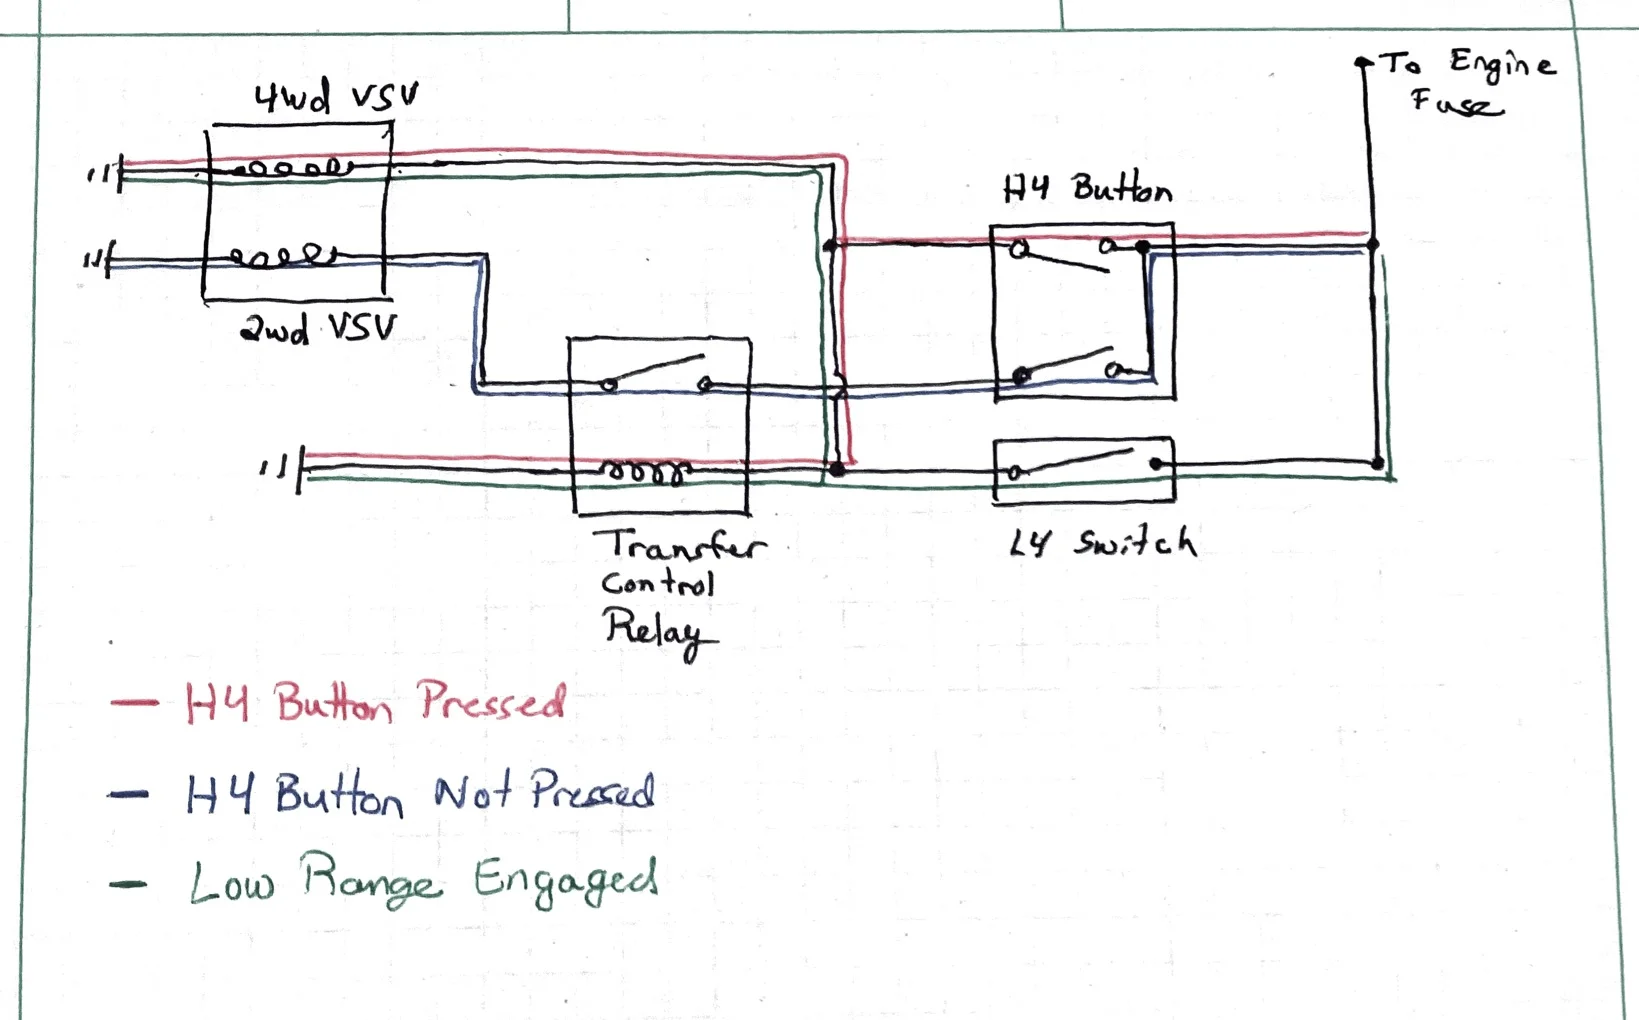 4wd VSV
To Engine
Fuse
H4 Button
2wd VSV
Transfer
Control
Relay
L4 Switch
H4 Button Pressed
H4 Button Not Pressed
Low Range Engaged